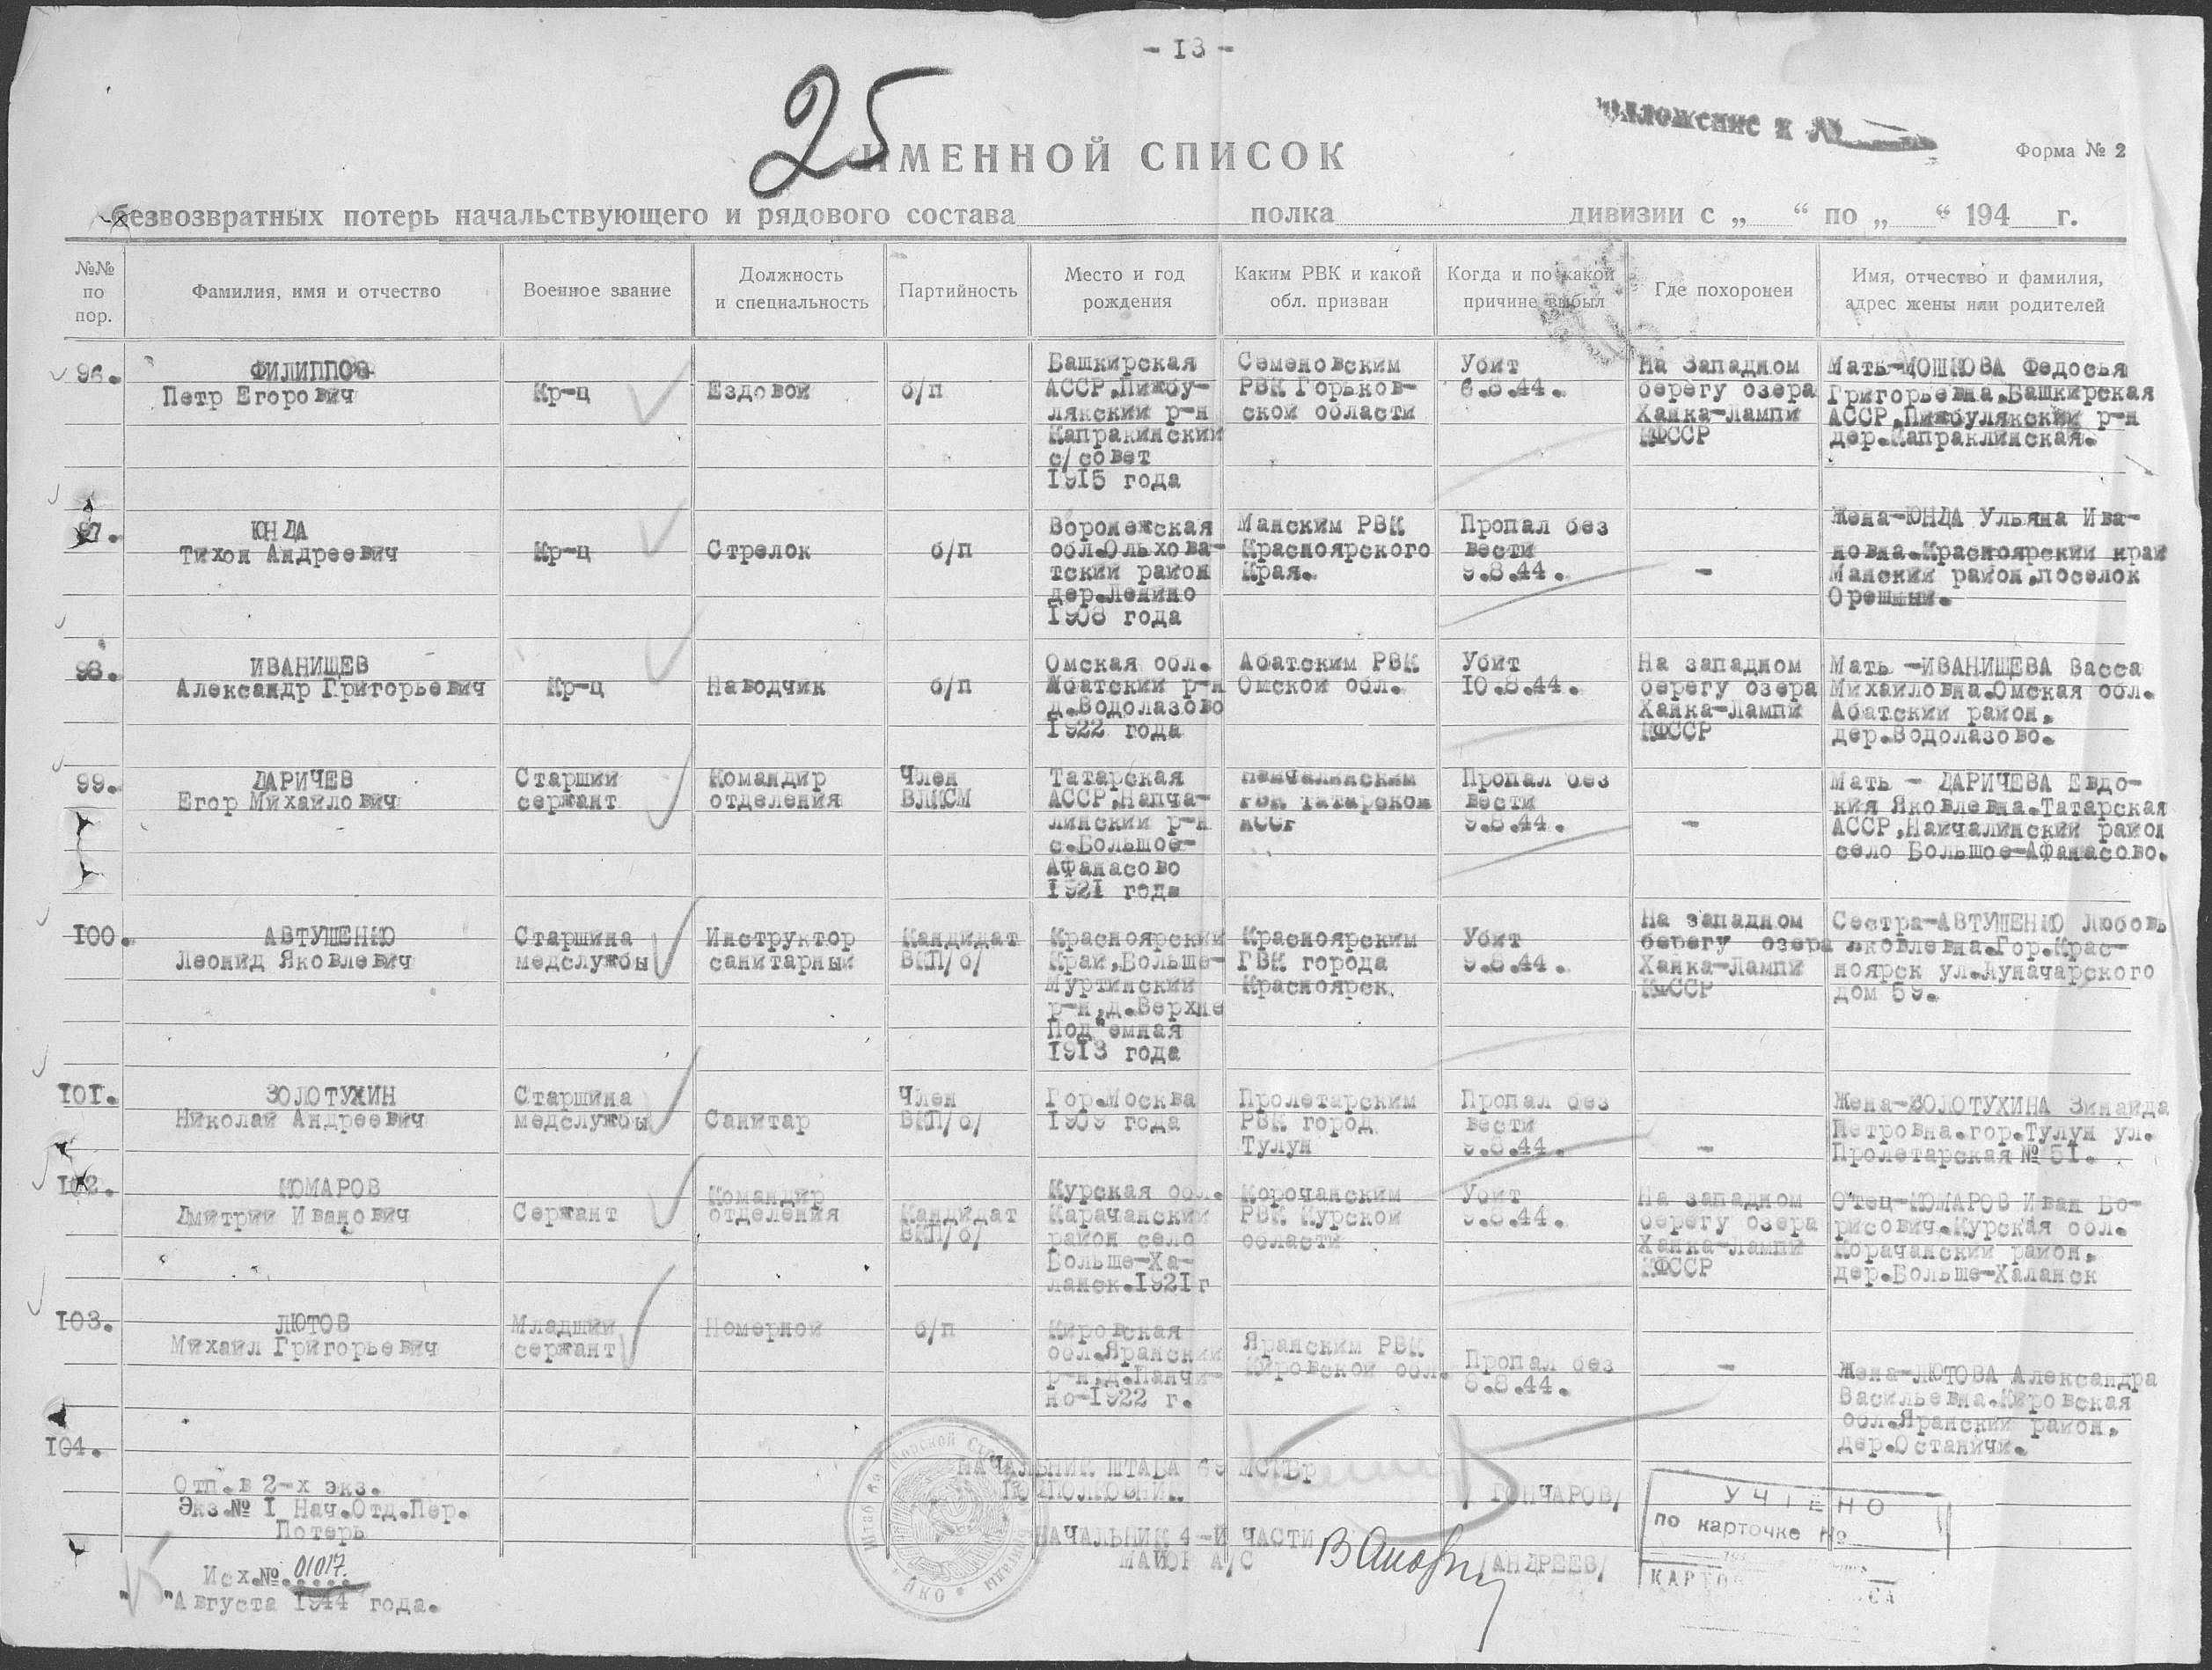 - 13 -
25
ИМЕННОЙ СПИСОК
Форма № 2
безвозвратных потерь начальствующего и рядового состава полка дивизии с „ “ по „ “ 194 г.
№№ по пор.
Фамилия, имя и отчество
Военное звание
Должность и специальность
Партийность
Место и год рождения
Каким РВК и какой обл. призван
Когда и по какой причине выбыл
Где похоронен
Имя, отчество и фамилия, адрес жены или родителей
96.
ФИЛИППОВ
Петр Егорович
Кр-ц
Ездовой
б/п
Башкирская
АССР,Пижбу-
лякский р-н
Капракинский
с/совет
1915 года
Семеновским
РВК Горьков-
ской области
Убит
6.8.44.
На Западном
берегу озера
Ханка-Лампи
КФССР
Мать-МОШКОВА Федосья
Григорьевна.Башкирская
АССР,Пижбулякский р-н
дер.Капраклинская.
97.
ЮНДА
Тихон Андреевич
Кр-ц
Стрелок
б/п
Воронежская
обл.Ольхова-
тский район
дер.Ленино
1908 года
Манским РВК
Красноярского
Края.
Пропал без
вести
9.8.44.
-
Жена-ЮНДА Ульяна Ива-
новна.Красноярский край
Манский район,поселок
98.
ИВАНИЩЕВ
Александр Григорьевич
Кр-ц
Наводчик
б/п
Омская обл.
Абатский р-н
д.Водолазово
1922 года
Абатским РВК
Омской обл.
Убит
10.8.44.
На западном
берегу озера
Ханка-Лампи
КФССР
Мать -ИВАНИЩЕВА Васса
Михайловна.Омская обл.
Абатский район.
дер.Водолазово.
99.
ДАРИЧЕВ
Егор Михайлович
Старший
сержант
Командир
отделения
Член
ВЛКСМ
Татарская
АССР,Напча-
линский р-н
с.Большое-
Афанасово
1921 года
РВК Татарской
АССР
Пропал без
вести
9.8.44.
-
Мать - ДАРИЧЕВА Евдо-
кия Яковлевна.Татарская
АССР,Найчалинский район
село Большое-Афанасово.
100.
АВТУШЕНКО
Леонид Яковлевич
Старшина
медслужбы
Инструктор
санитарный
Кандидат
ВКП/б/
Красноярский
Край,Больше-
Муртинский
р-н,д.Верхне
Под"емная
1913 года
Красноярским
ГВК города
Красноярск.
Убит
9.8.44.
На западном
берегу озера
Ханка-Лампи
КФССР
Сестра-АВТУШЕНКО Любовь
Яковлевна.Гор.Крас-
ноярск ул.Луначарского
дом 59.
101.
ЗОЛОТУХИН
Николай Андреевич
Старшина
медслужбы
Санитар
Член
ВКП/б/
Гор.Москва
1909 года
Пролетарским
РВК город
Тулун
Пропал без
вести
9.8.44.
-
Жена-ЗОЛОТУХИНА Зинаида
Петровна.гор.Тулун ул.
Пролетарская № 51.
102.
КОМАРОВ
Дмитрий Иванович
Сержант
Командир
отделения
Кандидат
ВКП/б/
Курская обл.
Карачанский
район село
Больше-Ха-
ланск.1921г
Корочанским
РВК Курской
области
Убит
9.8.44.
На западном
берегу озера
Ханка-Лампи
КФССР
Отец-КОМАРОВ Иван Бо-
рисович.Курская обл.
Корачанский район.
дер.Больше-Халанск
103.
ЛЮТОВ
Михаил Григорьевич
Младший
сержант
Номерной
б/п
Кировская
обл.Яранский
р-н,д.Панчи-
но-1922 г.
Яранским РВК
Кировской обл.
Пропал без
8.8.44.
-
Жена-ЛЮТОВА Александра
Васильевна.Кировская
обл.Яранский район.
дер.Останичи.
104.
Отп.в 2-х экз.
Экз.№ 1 Нач.Отд.Пер.
Потерь
Исх.№ 01017.
" "Августа 1944 года.
НАЧАЛЬНИК ШТАБА 69 МСТБР
ПОДПОЛКОВНИК
ГОНЧАРОВ/
НАЧАЛЬНИК 4-Й ЧАСТИ
МАЙОР А/С
/АНДРЕЕВ/
УЧТЕНО
по карточке №
НКО